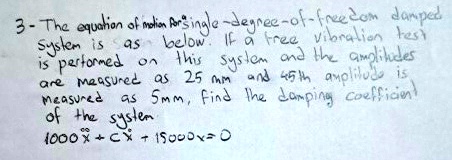 3- The equation of motion for single-degree-of-freedom damped
System is as below. If a free vibration test
is performed on this system and the amplitudes
are measured as 25 mm and 45th amplitude is
measured as 5mm, find the damping coefficient
of the system
1000ẍ + cẋ + 15000x=0